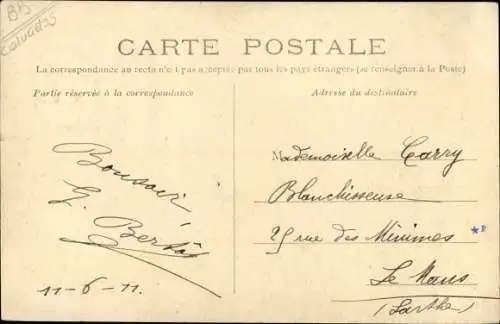 Calvados
CARTE POSTALE
La correspondance au recto n'est pas acceptée par tous les pays étrangers (se renseigner à la Poste)
Partie réservée à la correspondance
Adresse du destinataire
Bonsoir
G.
11-6-11.
Mademoiselle Carry
Blanchisseuse
25 rue des Minimes
Le Mans
(Sarthe)